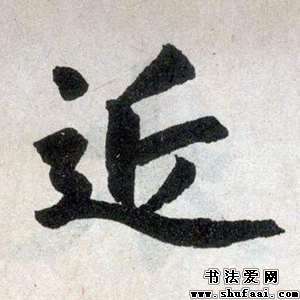 近
书法爱网
www.shufaai.com